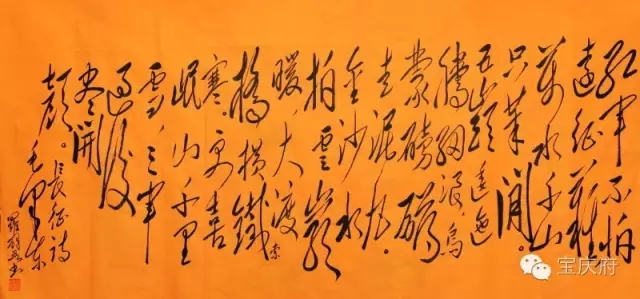 红军不怕
远征難
萬水千山
只等闲。
五岭逶迤
腾细浪,乌
蒙磅礴
走泥丸
金沙水
拍雲崖
暖,大渡
橋横鐵索
寒。更喜
岷山千里
雪,三军
过後
尽開
颜。長征诗
毛泽东
宝庆府